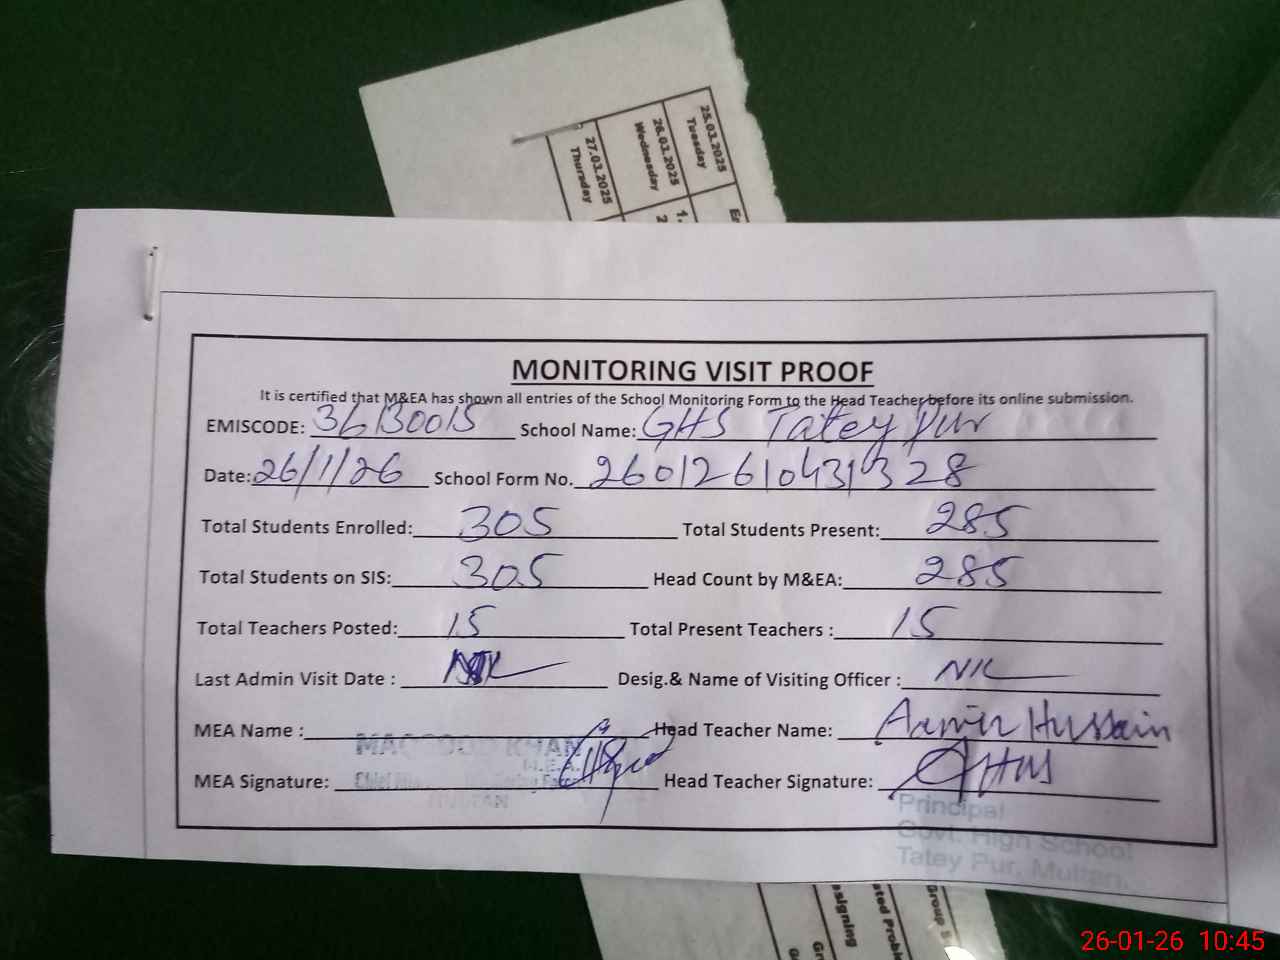 25.03.2025
Tuesday
26.03.2025
Wednesday
27.03.2025
Thursday
1.
2
MONITORING VISIT PROOF
It is certified that M&EA has shown all entries of the School Monitoring Form to the Head Teacher before its online submission.
EMISCODE: 36130015 School Name: GHS Tatey Pur
Date: 26/1/26 School Form No. 260126104311328
Total Students Enrolled: 305 Total Students Present: 285
Total Students on SIS: 305 Head Count by M&EA: 285
Total Teachers Posted: 15 Total Present Teachers : 15
Last Admin Visit Date : Desig.& Name of Visiting Officer : NIL
MEA Name : Head Teacher Name: Aamir Hussain
MAQSOOD KHAN
M.E.A.
MEA Signature: Head Teacher Signature:
Chief
MULTAN
Principal
Govt. High School
Tatey Pur, Multan.
signing
Group
26-01-26 10:45